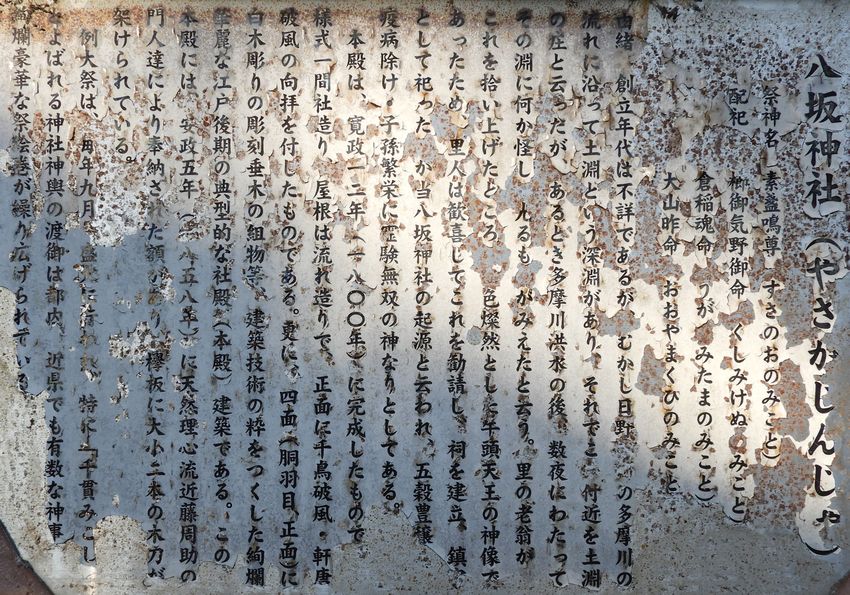 八坂神社(やさかじんじゃ)
祭神名 素盞鳴尊 すさのおのみこと)
配祀 櫛御気野御命 くしみけぬ のみこと)
倉稲魂命 うが みたまのみこと)
大山昨命 おおやまくひのみこと
由緒 創立年代は不詳であるが むかし日野 の多摩川の
流れに沿って土淵という深淵があり、それでこ 付近を土淵
の庄と云ったが あるとき多摩川洪水の後、数夜にわたって
その淵に何か怪し 光るも がみえたと云う。里の老翁が
これを拾い上げたところ 色燦然とした牛頭天王の神像で
あったため 里人は歓喜してこれを勧請し、祠を建立、鎮
として祀った が当八坂神社の起源と云われ、五穀豊穣
疫病除け、子孫繁栄に霊験無双の神なりとしてある。
本殿は、寛政一二年(一八〇〇年)に完成したもので
様式一間社造り、屋根は流れ造りで、正面に千鳥破風・軒唐
破風の向拝を付したものである。更に、四面(胴羽目、正面)に
白木彫りの彫刻垂木の組物等、建築技術の粋をつくした絢爛
華麗な江戸後期の典型的な社殿(本殿)建築である。この
本殿には、安政五年(一八五八年)に天然理心流近藤周助の
門人達により奉納された額があり、欅板に大小二本の木刀が
架けられている。
例大祭は、毎年九月 盛 に 特に「千貫みこし
とよばれる神社神輿の渡御は都内、近県でも有数な神事
絢爛豪華な祭絵巻が繰り広げられている。